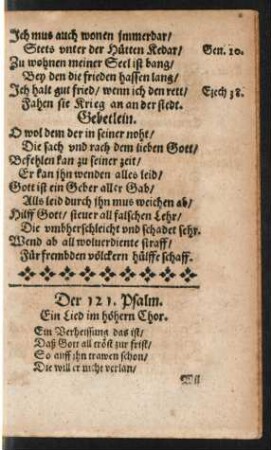 Ich mus auch wonen jmmerdar/
Stets vnter der Hütten Kedar/ Gen. 10.
Zu wohnen meiner Seel ist bang/
Bey den die frieden hassen lang/
Ich halt gut fried/ wenn ich den rett/ Ezech 38.
Fahen sie Krieg an an der stedt.
Gebetlein.
O wol dem der in seiner noht/
Die sach vnd rach dem lieben Gott/
Befehlen kan zu seiner zeit/
Er kan jhn wenden alles leid/
Gott ist ein Geber aller Gab/
Alls leid durch jhn mus weichen ab/
Hilff Gott/ steuer all falschen Lehr/
Die vmbherschleicht vnd schadet sehr.
Wend ab all woluerdiente straff/
Für frembden völckern hülffe schaff.
Der 121. Psalm.
Ein Lied im höhern Chor.
Ein Verheissung das ist/
Daß Gott all eröst zur frist/
So auff jhn trawen schon/
Die will er nicht verlan/
Wil